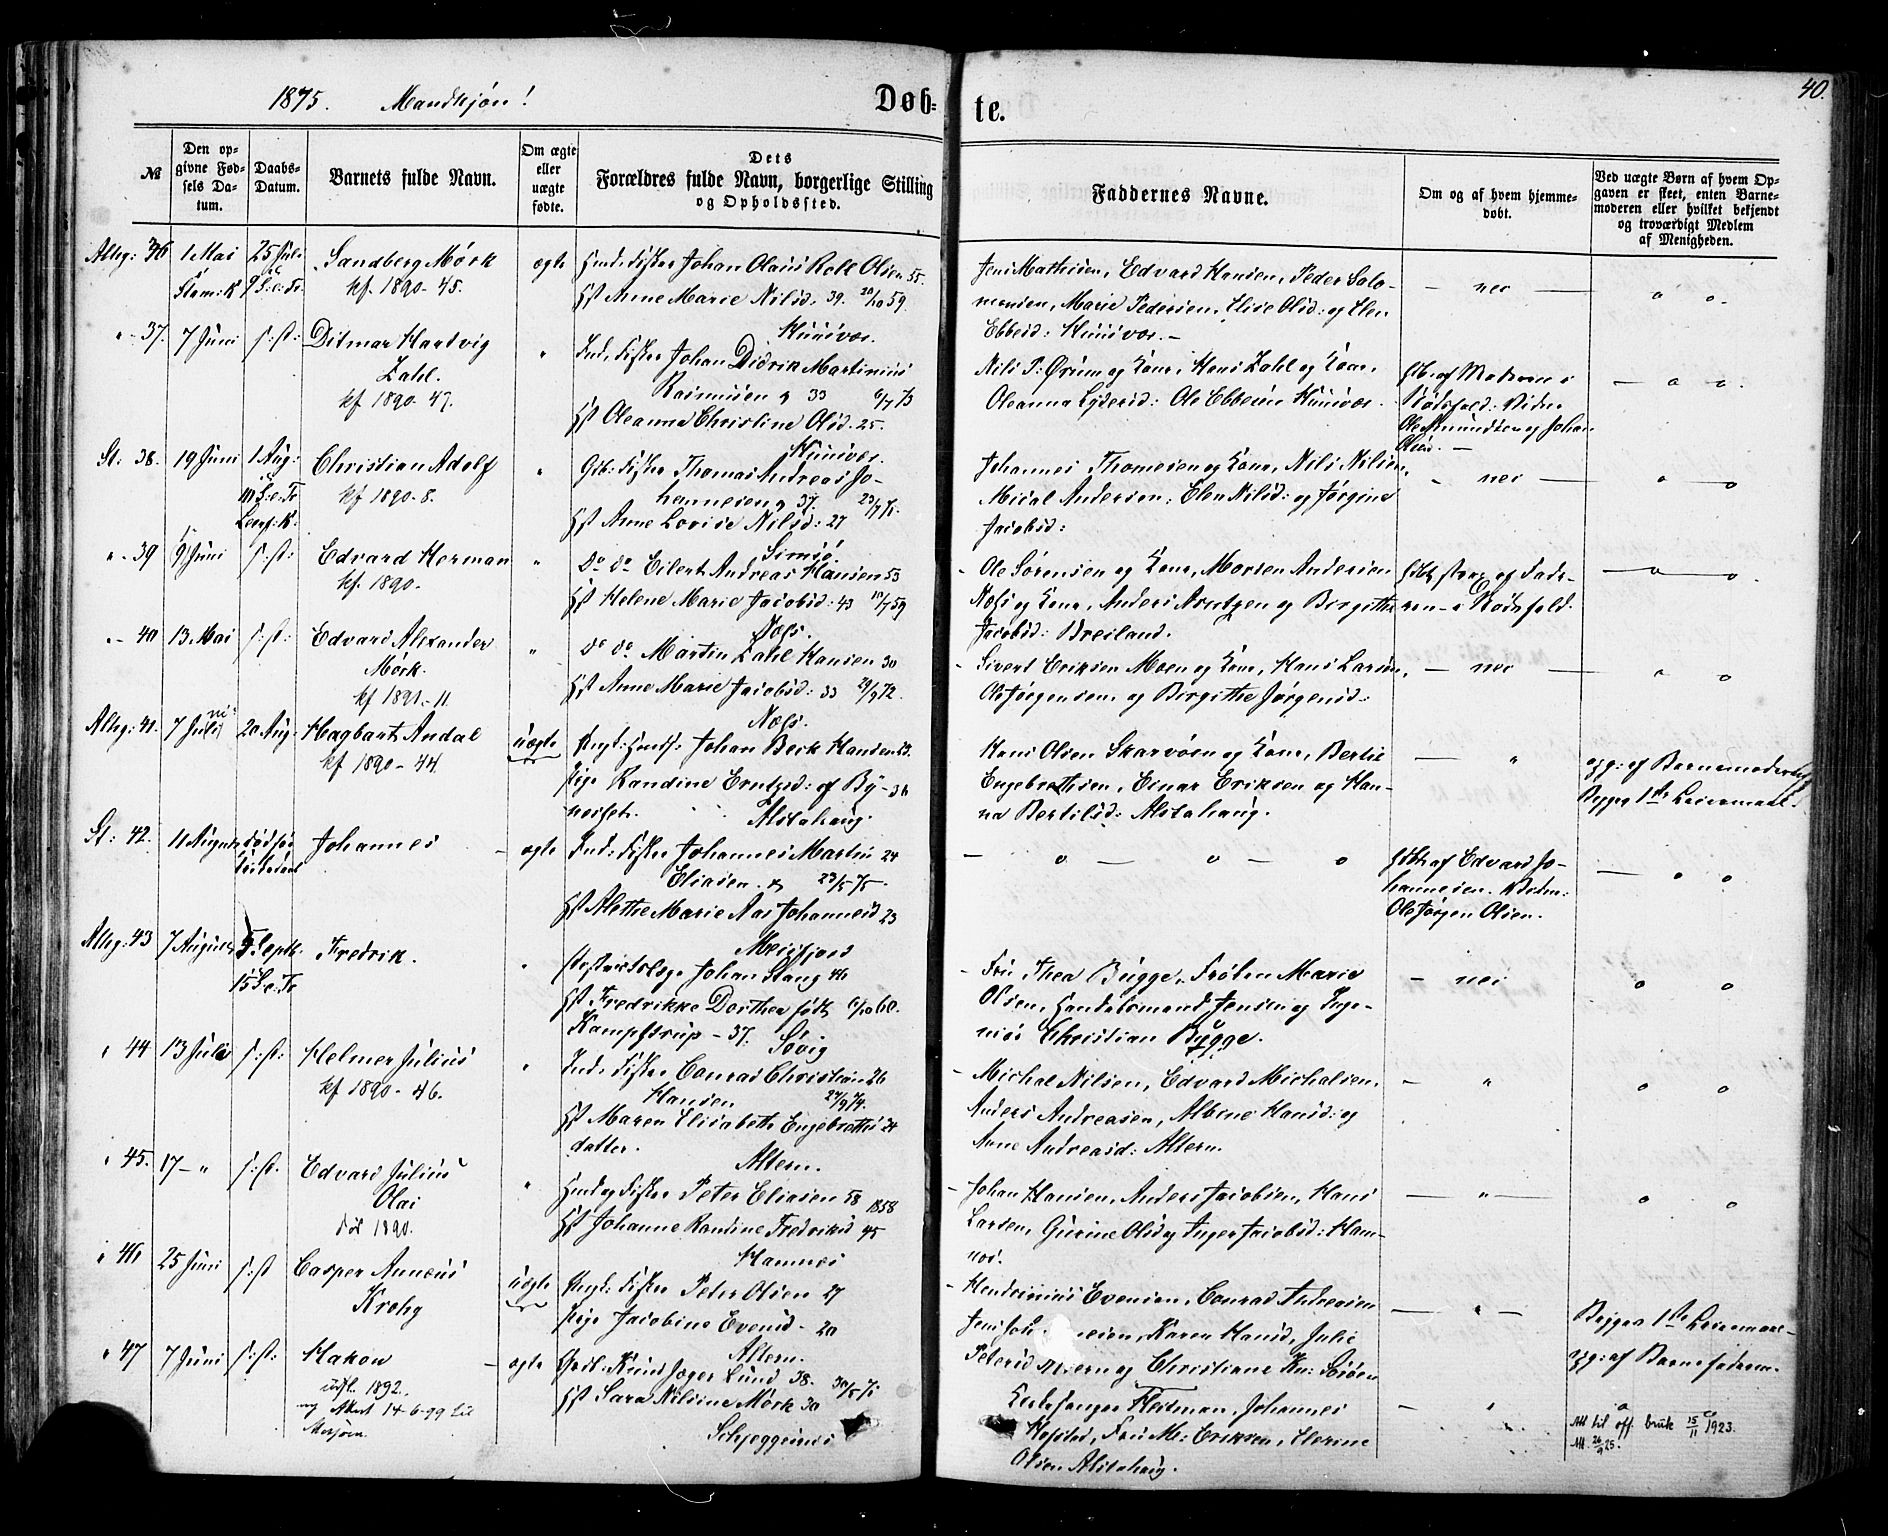 1875. Mandkjøn!
Døb-
te.
40.
№
Den op-
givne Fød-
sels Da-
tum.
Daabs-
Datum.
Barnets fulde Navn.
Om ægte
eller
uægte
fødte.
Dets
Forældres fulde Navn, borgerlige Stilling
og Opholdssted.
Faddernes Navne.
Om og af hvem hjemme-
døbt.
Ved uægte Børn af hvem Op-
gaven er skeet, enten Barne-
moderen eller hvilket bekjendt
og troværdigt Medlem
af Menigheden.
Alhg: 36
1 Mai
25 Juli
9 S: e: Tr.
Sandberg Mørk
kf. 1890-45.
ægte
Johan Olaus Roll Olsen 55.
Anne Marie Nilsd. 39. 20/10 59.
Husvær.
Jens Mathisen, Edvard Hansen, Peder Salo-
monsen, Marie Pedersen, Elise Olsd: og Elen
Ebbesd: Husvær.-
- nei -
" - 37.
7 Juni
s: st:
Ditmar Hartvig
Zahl.
kf 1890-47.
"
Ind. Fisker Johan Didrik Martinius
Rasmussen 33
Oleanna Christine Olsd. 25.
Husvær.
Nils P: Ørum og Kone, Hans Zahl og Kone,
Oleanna Lydersd: Ole Ebbesen Husvær.
Ole Amundsen og Johan
Olsen. -
St: 38.
19 Juni
1 Aug:
10 S: e: Tr
Christian Adolf
kf 1890-8.
"
Fisker Thomas Andreas Jo-
hannesen 37. 23/7 75.
Anne Lovise Nilsd: 27
Johannes Thomesen og Kone, Nils Nilsen,
Mikal Andersen, Elen Nilsd: og Jørgine
Jacobsd:
" nei -
" - 39
9 Juni
s: st:
Edvard Herman
kf. 1890-
"
Do do Eilert Andreas Hansen 53
Helene Marie Jacobsd: 43
Næss.
Ole Sørensen og Kone, Morten Andersen
Næss og Kone, Anders Arntzen og Birgitha
Jacobsd: Breiland.
" - 40
13 Mai
s: st:
Edvard Alexander
Mørk.
kf 1891-11.
"
Do do Martin Zahl Hansen 30
Anne Marie Jacobsd: 33 29/9 72.
Næss.
Sivert Eriksen Moen og Kone, Hans Larsen,
Ole Jørgensen og Birgitha Jørgensd:
- nei -
Alhg: 41.
7 Juni
20 Aug.
Hagbart Andal
kf 1890-44.
uægte
Johan Berk Hansen
Pige Randine Erntzsd: af By-
neset.
Alstahaug.
Hans Olsen Skarvøen og Kone, Bertil
Engebretsen, Einar Eriksen og Han-
na Bertilsd: Alstahaug.
- " -
opg: af Barnemoderen
Begges 1ste Leiermaal.
St: 42.
11 August
dødfør
Johannes
ægte
Ind: Fisker Johannes Martin 24
Eliasen. 23/5 75.
Alethe Marie Aas Johannesd 23
Meisfjord
- o - o - o
hdbt af Edvard Jo-
hannesen. Vidne:
Ole Jørgen Olsen.
Alhg: 43
7 August
5 Septb.
15 S. e. Tr
Fredrik.
Distriktslæge Johan Stang 46
Fredrikke Dorthea født 6/10 60.
Kampstrup - 37. Søvig
Fru Thea Bugge, Frøken Marie
Olsen, Handelsmand Jensen og Inge-
niør Christian Bugge.
- nei
" 44
13 Juli
s: st:
Helmer Julius
kf 1890-46.
"
Ind. Fisker Conrad Christian 26
Hansen 27/9 74.
Maren Elisabeth Engebrethes 24
datter.
Altern.
Michal Nilsen, Edvard Michalsen,
Anders Andreasen, Albine Hansd: og
Anne Andreasd: Altern.
- "
" 45.
17 - "
s: st.
Edvard Julius
Olai
kf 1890.
"
Fisker Peter Eliasen 58 1858
Johanne Randine Fredriksd 45
Hamnes
Johan Hansen, Anders Jacobsen, Hans
Larsen, Gurine Olsd og Inger Jacobsd: Ham-
nes.
- " -
" 46
25 Juni
s: st
Casper Anneus
Krohg
uægte
Fisker Peter Olsen 27
Pige Jacobine Evensd - 20
Altern.
Hendrinius Evensen, Conrad Andreasen
Karen Hansd, Julie
Petersd Altern og Christiane
- " -
Begges 1ste Leiermaal-
opg: af Barnefaderen.
" 47
7 Juni
s: st:
Hakon
udfl. 1892.
og Attest 14-6-99 til
Mosjøen.
ægte
Knud Jæger Lund 38. 30/5 71
Sara Nilsine Mørk 30
Skjeggesnes
Kirkesanger Fleidman, Johannes
Hofstad, Fru M: Eriksen, Elerine
Olsen Alstahaug.
- "
Att til off. bruk 15/11 1923.
Att. 26/9 25.